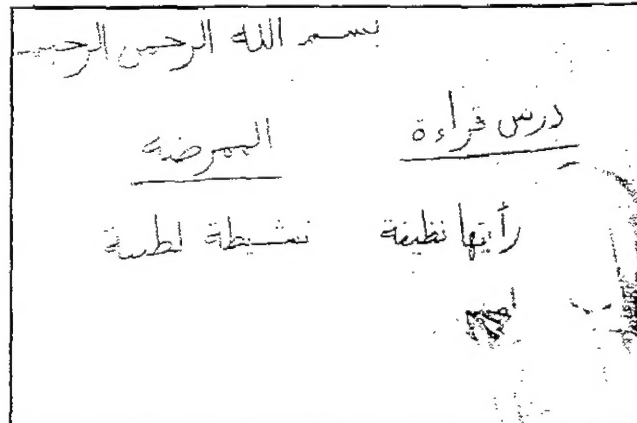 بسم الله الرحمن الرحيم
درس قراءة الممرضه
رأيتها نظيفة نشيطة لطيفة